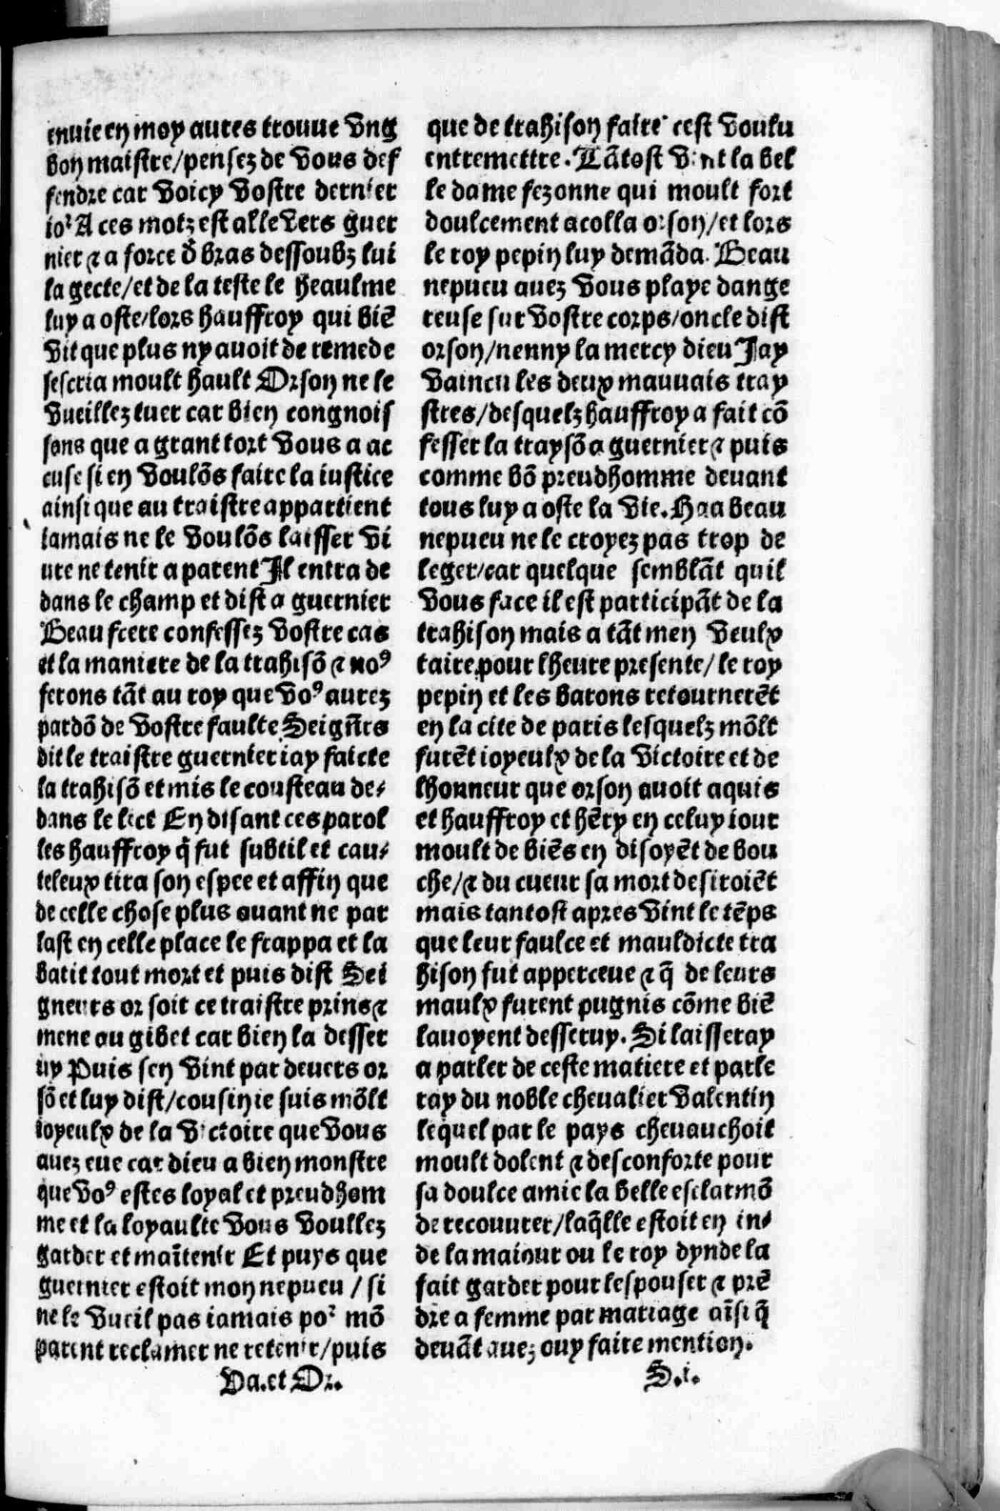 enuie en moy aures trouue vng
bon maistre/pensez de vous def
fendre car voicy vostre dernier
ioꝛ A ces motz est alle vers guer
nier ⁊ a force d̄ bras dessoubz lui
la gecte/et de la teste le heaulme
luy a oste/lors hauffroy qui biē
vit que plus ny auoit de remede
sescria moult hault Orson ne le
vueillez tuer car bien congnois
sons que a grant tort vous a ac
cuse si en voulōs faire la iustice
ainsi que au traistre appartient
iamais ne le voulōs laisser vi
ure ne tenir a parent Il entra de
dans le champ et dist a guernier
Beau frere confessez vostre cas
et la maniere de la trahisō ⁊ noꝰ
ferons tāt au roy que voꝰ aurez
pardō de vostre faulte Seign̄rs
dit le traistre guernier iay faicte
la trahisō et mis le cousteau de-
dans le lict En disant ces parol
les hauffroy q̄ fut subtil et cau-
teleux tira son espee et affin que
de celle chose plus auant ne par
last en celle place le frappa et la
batit tout mort et puis dist Sei
gneurs or soit ce traistre prins ⁊
mene au gibet car bien la desser
uy Puis sen vint par deuers or
sō et luy dist/cousin ie suis mōlt
ioyeulx de la victoire que vous
auez eue car dieu a bien monstre
que voꝰ estes loyal et preudhom
me et la loyaulte vous voullez
garder et maītenir Et puys que
guernier estoit mon nepueu / si
ne le vueil pas iamais poꝛ mō
parent reclamer ne retenir/puis
Va.et Or.
que de trahison faire cest voulu
entremettre. Tātost vint la bel
le dame fezonne qui moult fort
doulcement acolla orson/et lors
le roy pepin luy demāda. Beau
nepueu auez vous playe dange
reuse sur vostre corps/oncle dist
orson/nenny la mercy dieu Jay
vaincu les deux mauuais tray
stres/desquelz hauffroy a fait cō
fesser la traysō a guernier ⁊ puis
comme bō preudhomme deuant
tous luy a oste la vie. Haa beau
nepueu ne le croyez pas trop de
leger/car quelque semblāt quil
vous face il est participāt de la
trahison mais a tāt men veulx
taire pour lheure presente/le roy
pepin et les barons retournerēt
en la cite de paris lesquelz mōlt
furēt ioyeulx de la victoire et de
lhonneur que orson auoit aquis
et hauffroy et hēry en celuy iour
moult de biēs en disoyēt de bou
che/⁊ du cueur sa mort desiroiēt
mais tantost apres vint le tēps
que leur faulce et mauldicte tra
hison fut apperceue ⁊ q̄ de leurs
maulx furent pugnis cōme biē
lauoyent desseruy. Si laisseray
a parler de ceste matiere et parle
ray du noble cheualier Valentin
lequel par le pays cheuauchoit
moult dolent ⁊ desconforte pour
sa doulce amie la belle esclarmō
de recouurer/laq̄lle estoit en in-
de la maiour ou le roy dynde la
fait garder pour lespouser ⁊ prē
dre a femme par mariage aīsi q̄
deuāt auez ouy faire mention.
S.i.